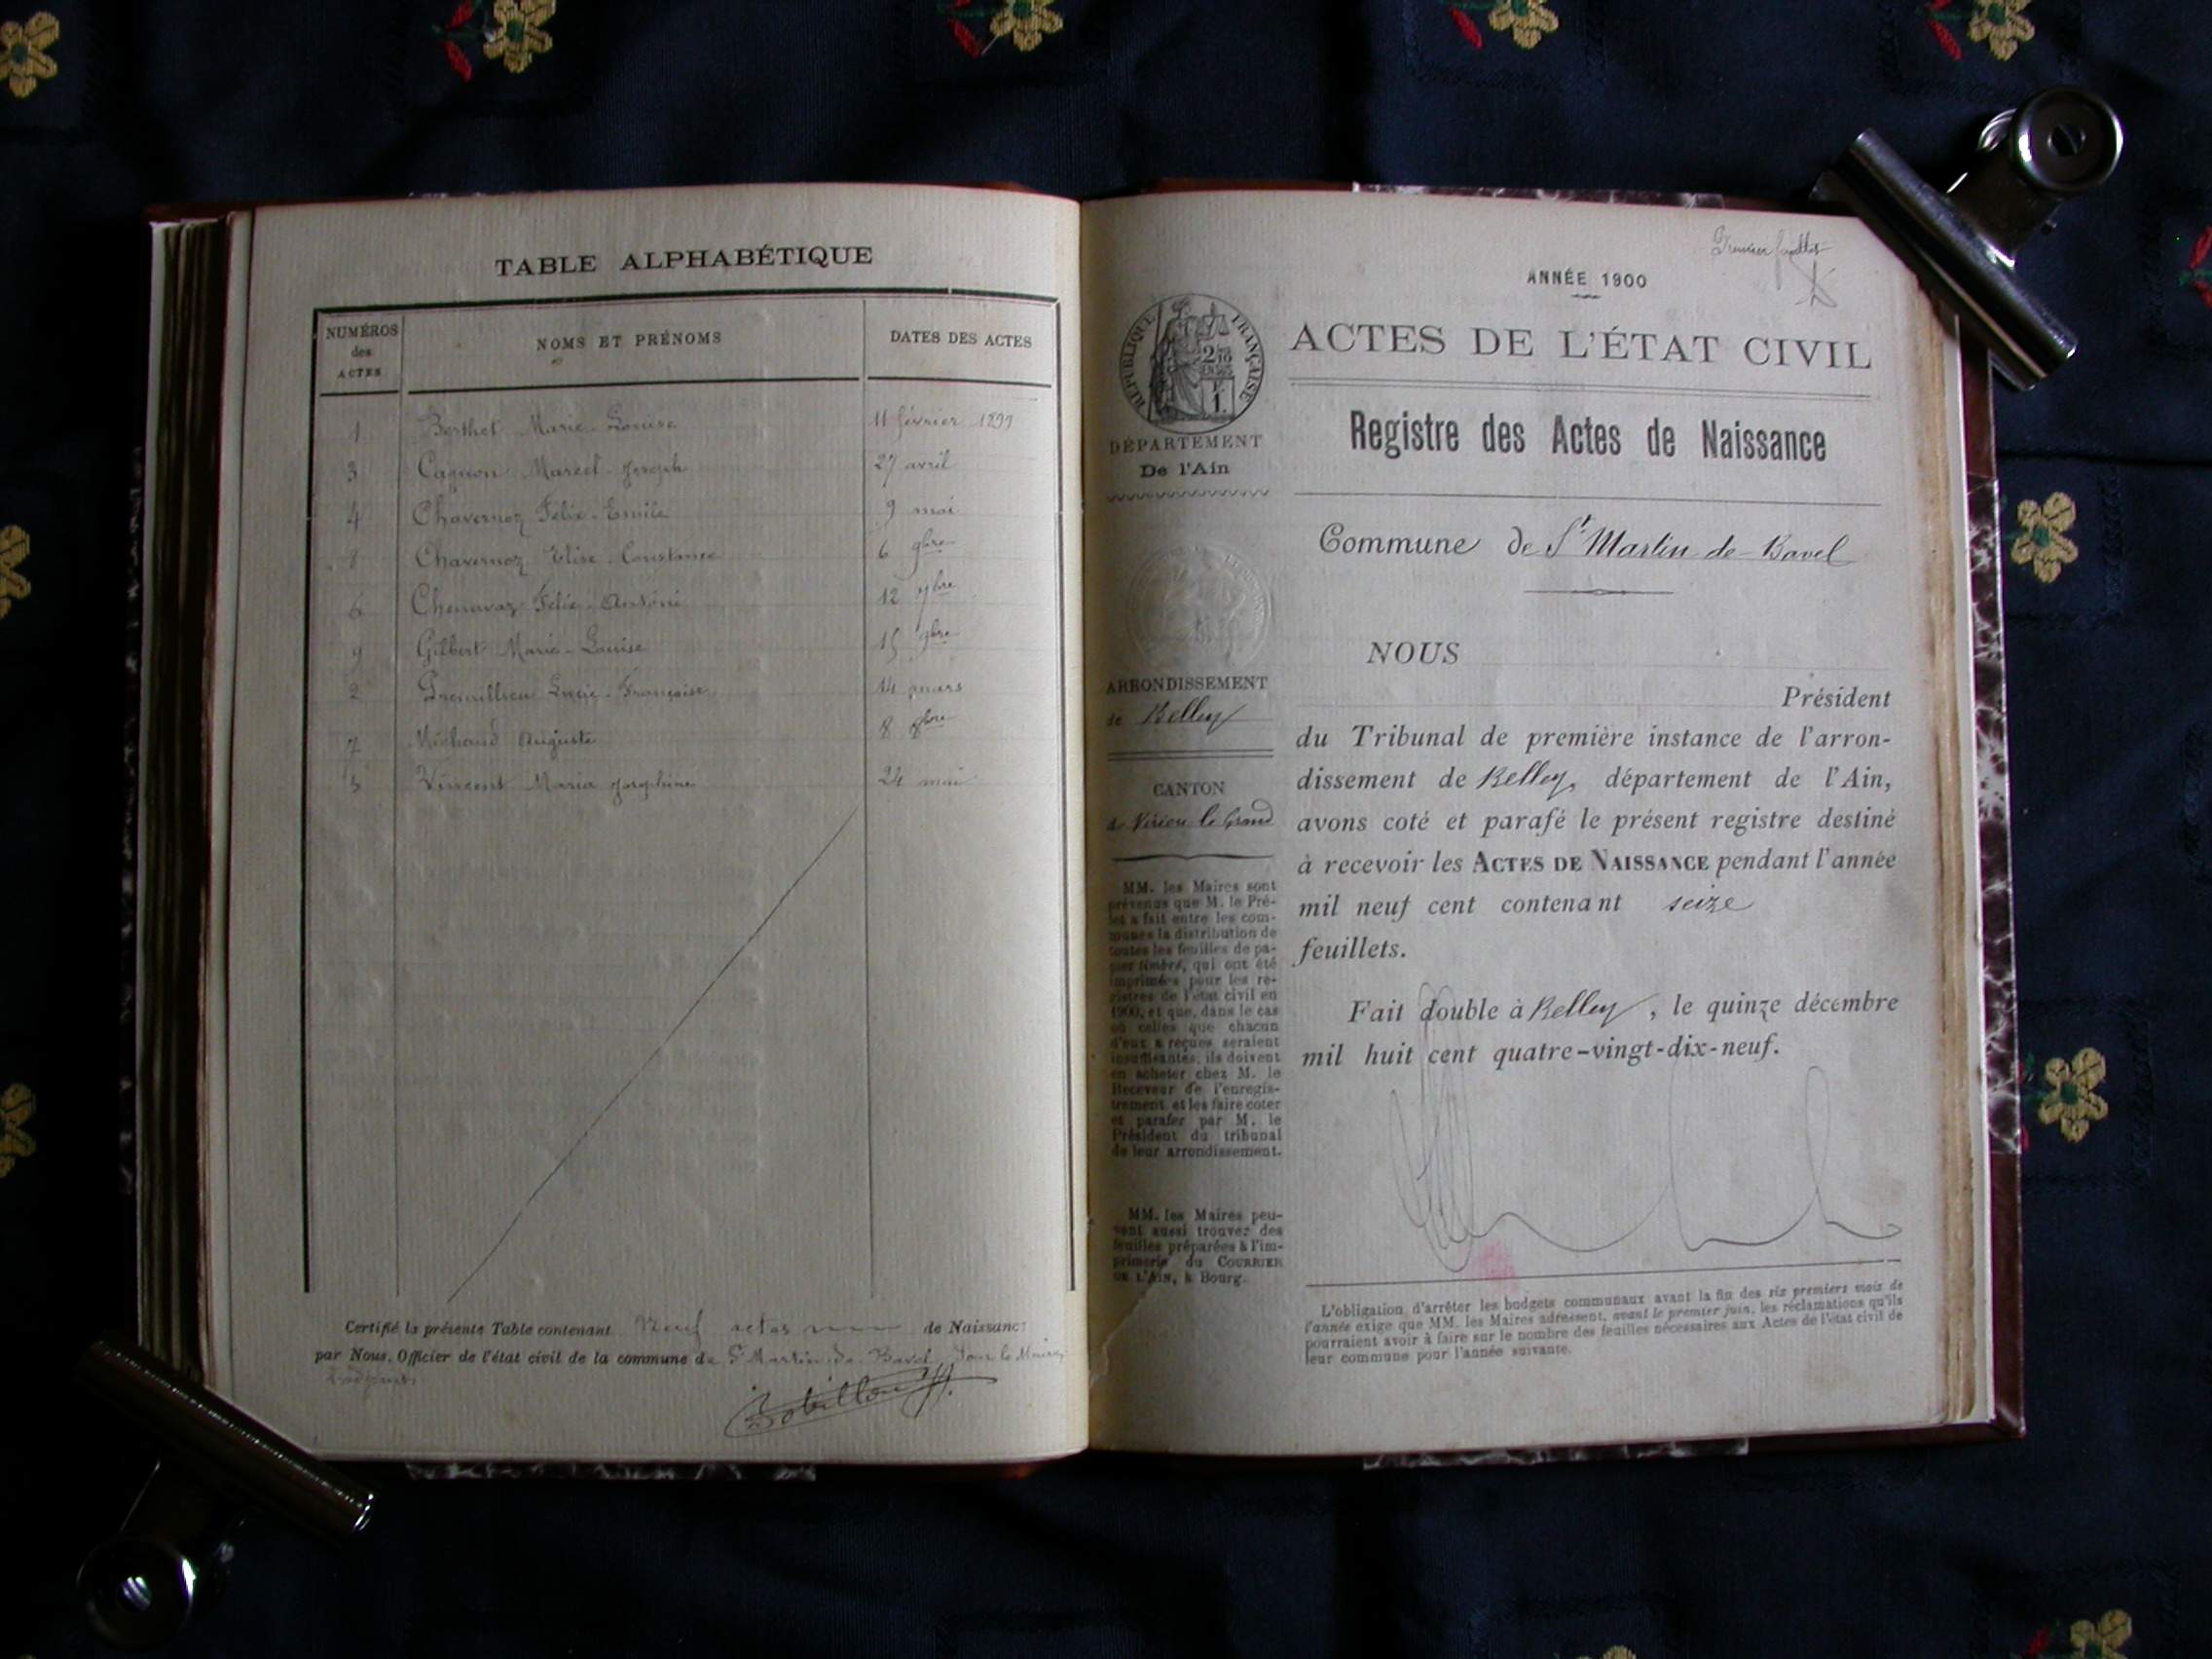 TABLE ALPHABÉTIQUE
NUMÉROS
des
ACTES
NOMS ET PRÉNOMS
DATES DES ACTES
1 Berthet Marie-Louise 11 février 1899
3 Cagnon Marcel-Joseph 27 avril
4 Chavernoz Félix-Emile 9 mai
8 Chavernoz Elise-Constance 6 9bre
6 Chenavaz Félix-Antoine 12 7bre
9 Gilbert Marie-Louise 15 9bre
2 Gremillieu Lucie-Françoise 14 mars
7 Michaud Auguste 8 8bre
5 Vincent Maria Joséphine 24 mai
Certifié la présente Table contenant Neuf actes de Naissance
par Nous, Officier de l'état civil de la commune de St Martin-de-Bavel, Pour le Maire,
L'adjoint
Premier feuillet
ANNÉE 1900
RÉPUBLIQUE FRANÇAISE
2/10 EN SUS
1
ACTES DE L'ÉTAT CIVIL
DÉPARTEMENT
De l'Ain
Registre des Actes de Naissance
Commune de St Martin-de-Bavel
ARRONDISSEMENT
de Belley
CANTON
de Virieu le Grand
MM. les Maires sont
prévenus que M. le Pré-
fet a fait entre les com-
munes la distribution de
toutes les feuilles de pa-
pier timbré, qui ont été
imprimées pour les re-
gistres de l'état civil en
1900, et que, dans le cas
où celles que chacun
d'eux a reçues seraient
insuffisantes, ils doivent
en acheter chez M. le
Receveur de l'enregis-
trement, et les faire coter
et parafer par M. le
Président du tribunal
de leur arrondissement.
MM. les Maires peu-
vent aussi trouver des
feuilles préparées à l'im-
primerie du COURRIER
DE L'AIN, à Bourg.
NOUS
Président
du Tribunal de première instance de l'arron-
dissement de Belley, département de l'Ain,
avons coté et parafé le présent registre destiné
à recevoir les ACTES DE NAISSANCE pendant l'année
mil neuf cent contenant seize
feuillets.
Fait double à Belley, le quinze décembre
mil huit cent quatre-vingt-dix-neuf.
L'obligation d'arrêter les budgets communaux avant la fin des six premiers mois de
l'année exige que MM. les Maires adressent, avant le premier juin, les réclamations qu'ils
pourraient avoir à faire sur le nombre des feuilles nécessaires aux Actes de l'état civil de
leur commune pour l'année suivante.